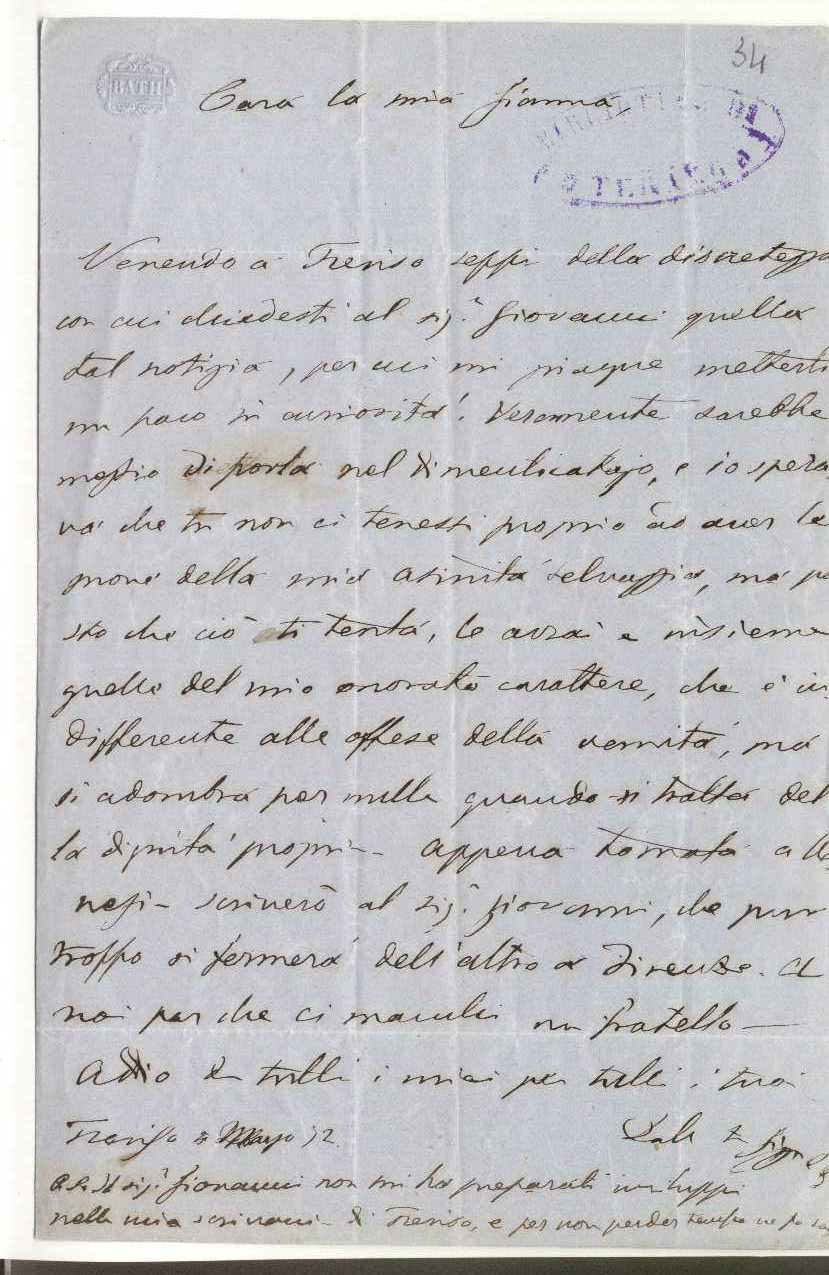 34
BATH
Cara la mia Gianna,
Venendo a Treviso seppi della discretezza
con cui chiedesti al sig.r Giovanni quella
tal notizia, per cui mi piaque metterti
un poco in curiosità. Veramente sarebbe
meglio di porla nel dimenticatojo, e io spera
va che tu non ci tenessi proprio ad aver le
prove della mia asinità selvaggia, ma po
sto che ciò ti tenta, le avrai e insieme
quelle del mio onorato carattere, che è in
differente alle offese della vanità, ma
si adombra per nulla quando si tratta del
la dignità propria - appena tornata a
scriverò al sig.r Giovanni, che pur
troppo si fermerà dell'altro a Firenze. A
noi par che ci manchi un fratello —
Adio di tutti i miei per tutti i tuoi
Treviso Marzo 72
P.S. Il sig.r Giovanni non mi ha preparati inviluppi
nella mia scrivania di Treviso, e per non perder tempo ne fo